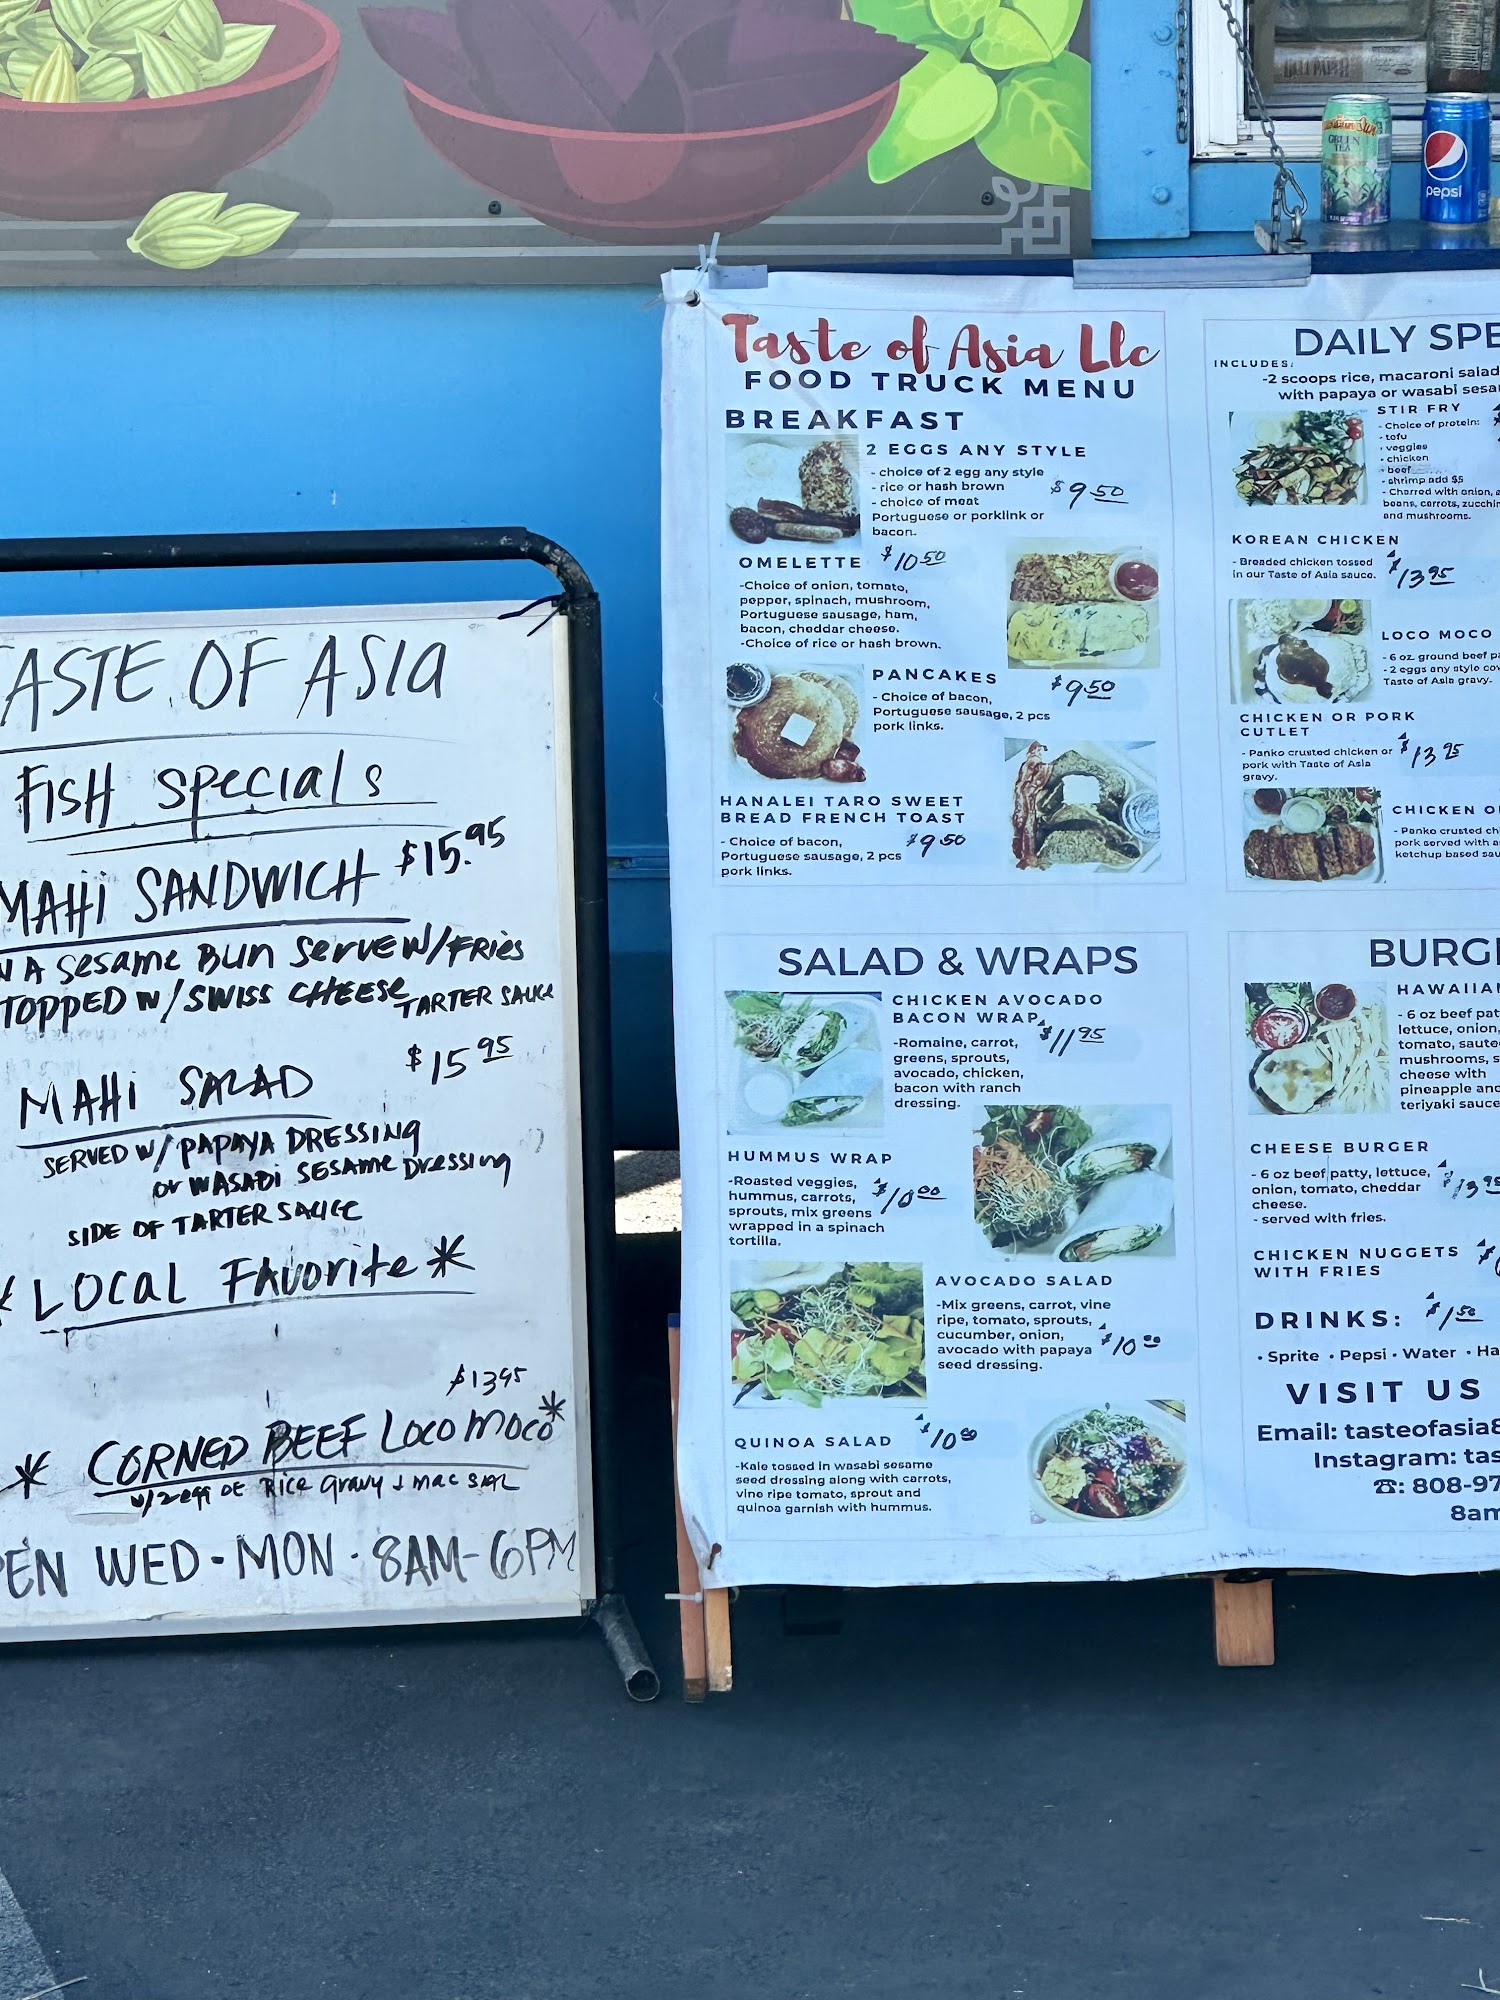 GREEN
TEA
pepsi
TASTE OF ASIA
FISH Specials
MAHi SANDWICH $15.95
A Sesame Bun Serve W/Fries
TOPPED W/SWISS CHEESE TARTER SAUCE
MAHi SALAD $15 95
SERVED W/ PAPAYA DRESSING
or WASABI SESAME Dressing
SIDE OF TARTER SAUCE
LOCAL FAVorite *
$13 95
* CORNED BEEF Loco Moco *
w/2 egg Rice Gravy + mac
WED - MON - 8AM - 6PM
Taste of Asia Llc
FOOD TRUCK MENU
BREAKFAST
2 EGGS ANY STYLE
- choice of 2 egg any style
- rice or hash brown $9 50
- choice of meat
Portuguese or porklink or
bacon.
OMELETTE $10 50
-Choice of onion, tomato,
pepper, spinach, mushroom,
Portuguese sausage, ham,
bacon, cheddar cheese.
-Choice of rice or hash brown.
PANCAKES $9 50
- Choice of bacon,
Portuguese sausage, 2 pcs
pork links.
HANALEI TARO SWEET
BREAD FRENCH TOAST
- Choice of bacon, $9 50
Portuguese sausage, 2 pcs
pork links.
DAILY SPE
INCLUDES:
-2 scoops rice, macaroni salad
with papaya or wasabi sesa
STIR FRY
- Choice of protein:
- tofu
- veggies
- chicken
- beef
- shrimp add $5
- Charred with onion,
beans, carrots, zucchin
and mushrooms.
KOREAN CHICKEN
- Breaded chicken tossed
in our Taste of Asia sauce. $13 95
LOCO MOCO
- 6 oz ground beef pa
- 2 eggs any style cov
Taste of Asia gravy.
CHICKEN OR PORK
CUTLET
- Panko crusted chicken or $13 95
pork with Taste of Asia
gravy.
CHICKEN O
- Panko crusted ch
pork served with a
ketchup based sau
SALAD & WRAPS
CHICKEN AVOCADO
BACON WRAP $11 95
-Romaine, carrot,
greens, sprouts,
avocado, chicken,
bacon with ranch
dressing.
HUMMUS WRAP
-Roasted veggies,
hummus, carrots, $10 00
sprouts, mix greens
wrapped in a spinach
tortilla.
AVOCADO SALAD
-Mix greens, carrot, vine
ripe, tomato, sprouts,
cucumber, onion, $10 00
avocado with papaya
seed dressing.
QUINOA SALAD $10 00
-Kale tossed in wasabi sesame
seed dressing along with carrots,
vine ripe tomato, sprout and
quinoa garnish with hummus.
BURG
HAWAIIAN
- 6 oz beef pat
lettuce, onion,
tomato, saute
mushrooms, s
cheese with
pineapple and
teriyaki sauce
CHEESE BURGER
- 6 oz beef patty, lettuce,
onion, tomato, cheddar $13 95
cheese.
- served with fries.
CHICKEN NUGGETS
WITH FRIES
DRINKS: $1 50
• Sprite • Pepsi • Water • Ha
VISIT US
Email: tasteofasia8
Instagram: tas
☎: 808-97
8am